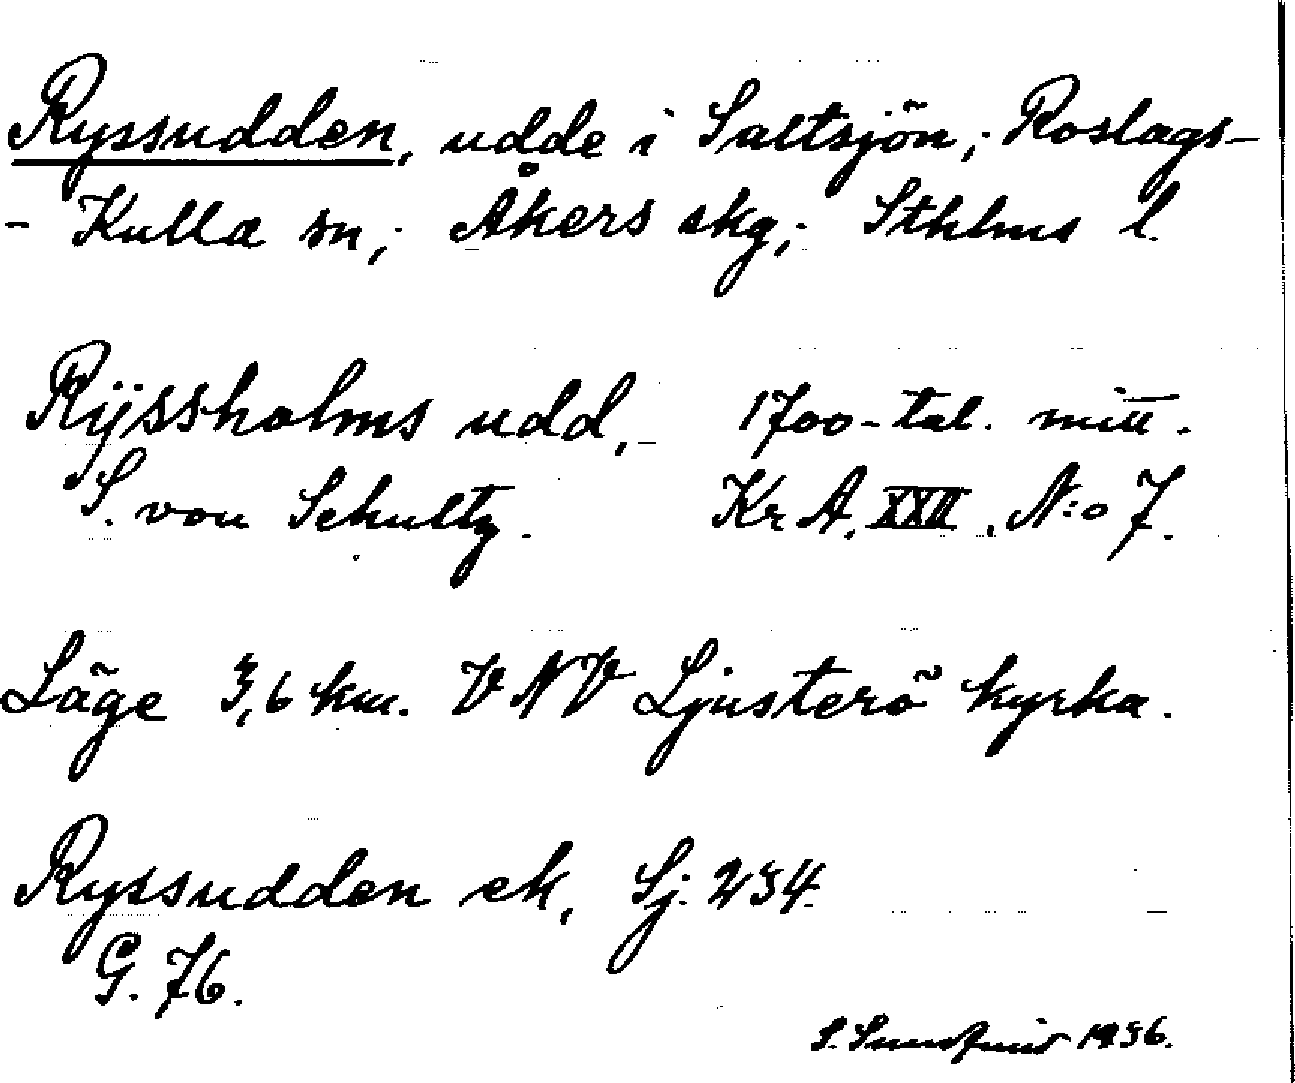 Ryssudden, udde i Saltsjön; Roslags-
- Kulla sn; Åkers skg; Sthlms l.
Rÿssholms udd, 1700-tal. mitt.
S. von Schultz. Kr A. XXII. N:o 7.
Läge 3,6 km. VNV Ljusterö kyrka.
Ryssudden ek, Sj. 234.
G. 76.
S. 1936.